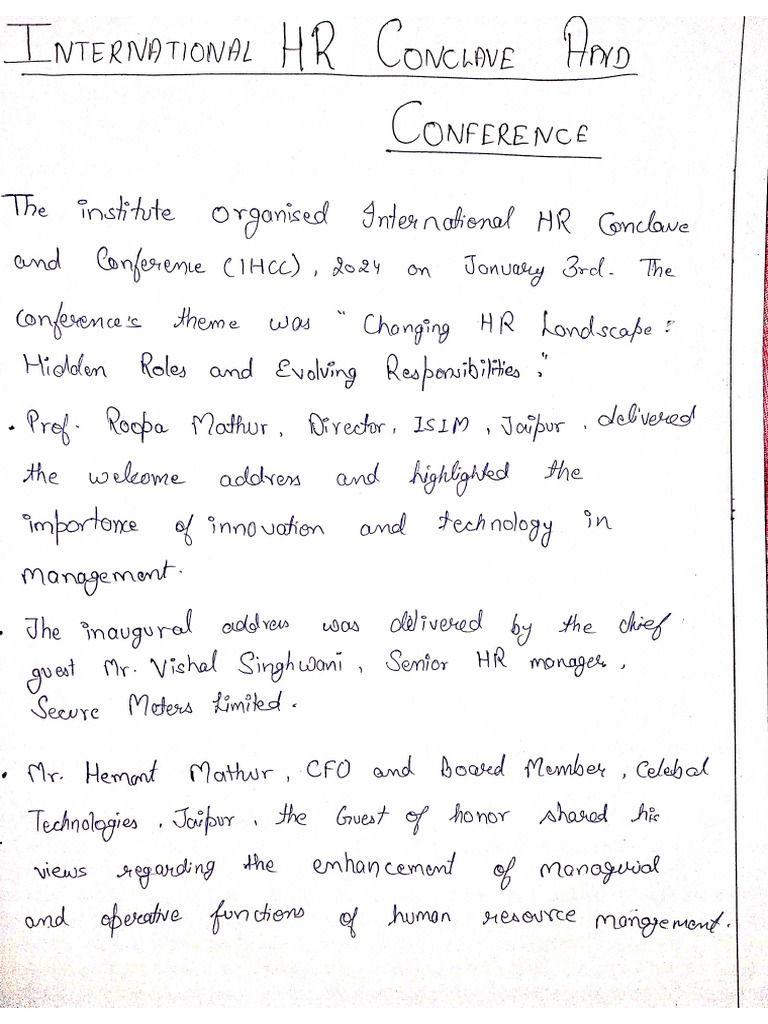 INTERNATIONAL HR CONCLAVE AND
CONFERENCE
The institute organised International HR Conclave
and Conference (IHCC), 2024 on January 3rd. The
conference's theme was "Changing HR Landscape:
Hidden Roles and Evolving Responsibilities."
• Prof. Roopa Mathur, Director, ISIM, Jaipur, delivered
the welcome address and highlighted the
importance of innovation and technology in
management.
• The inaugural address was delivered by the chief
guest Mr. Vishal Singhwani, Senior HR manager,
Secure Meters Limited.
• Mr. Hemant Mathur, CFO and Board Member, Celebal
Technologies, Jaipur, the Guest of honor shared his
views regarding the enhancement of managerial
and operative functions of human resource management.